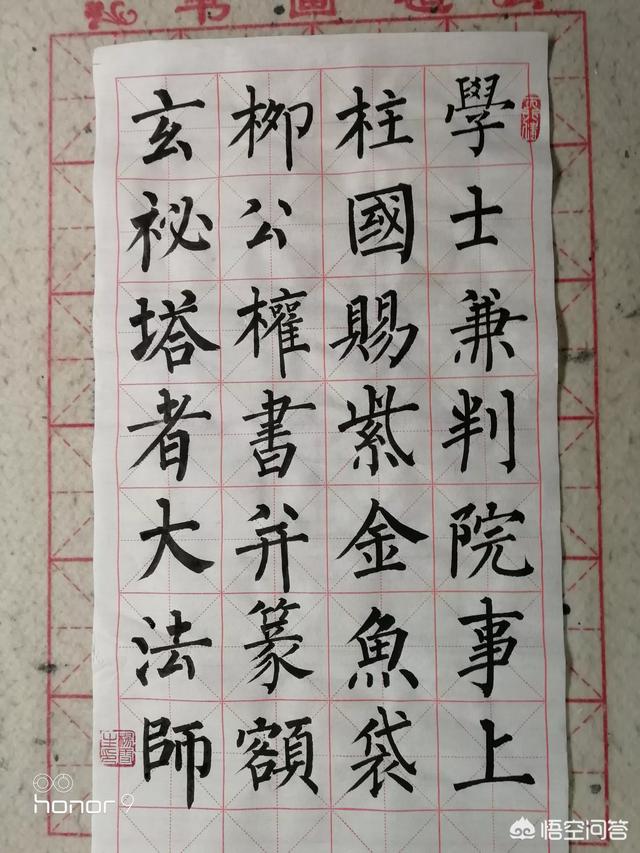 學士兼判院事上
柱國賜紫金魚袋
柳公權書并篆額
玄祕塔者大法師
honor 9
悟空问答